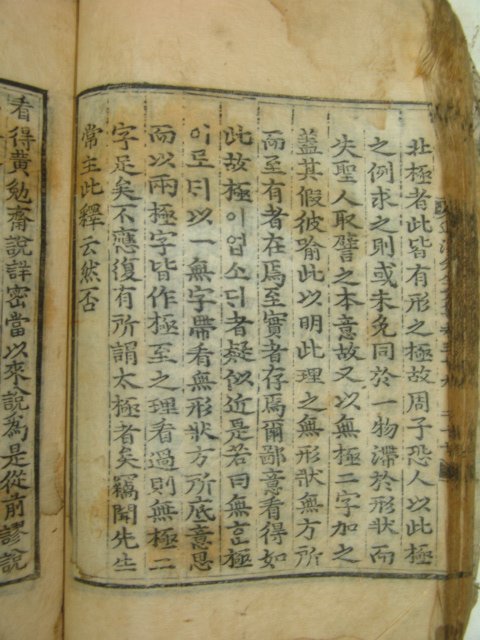 北極者此皆有形之極故周子恐人以此極
之例求之則或未免同於一物滯於形狀而
失聖人取譬之本意故又以無極二字加之
蓋其假彼喻此以明此理之無形狀無方所
而至有者在焉至實者存焉爾鄙意看得如
此故極이업소되者疑似近是若曰無言極
이로되以一無字帶看無形狀方所底意思
而以兩極字皆作極至之理看過則無極二
字足矣不應復有所謂太極者矣竊聞先生
常主此釋云然否
看得黃勉齋說詳密當以來說為是從前謬說